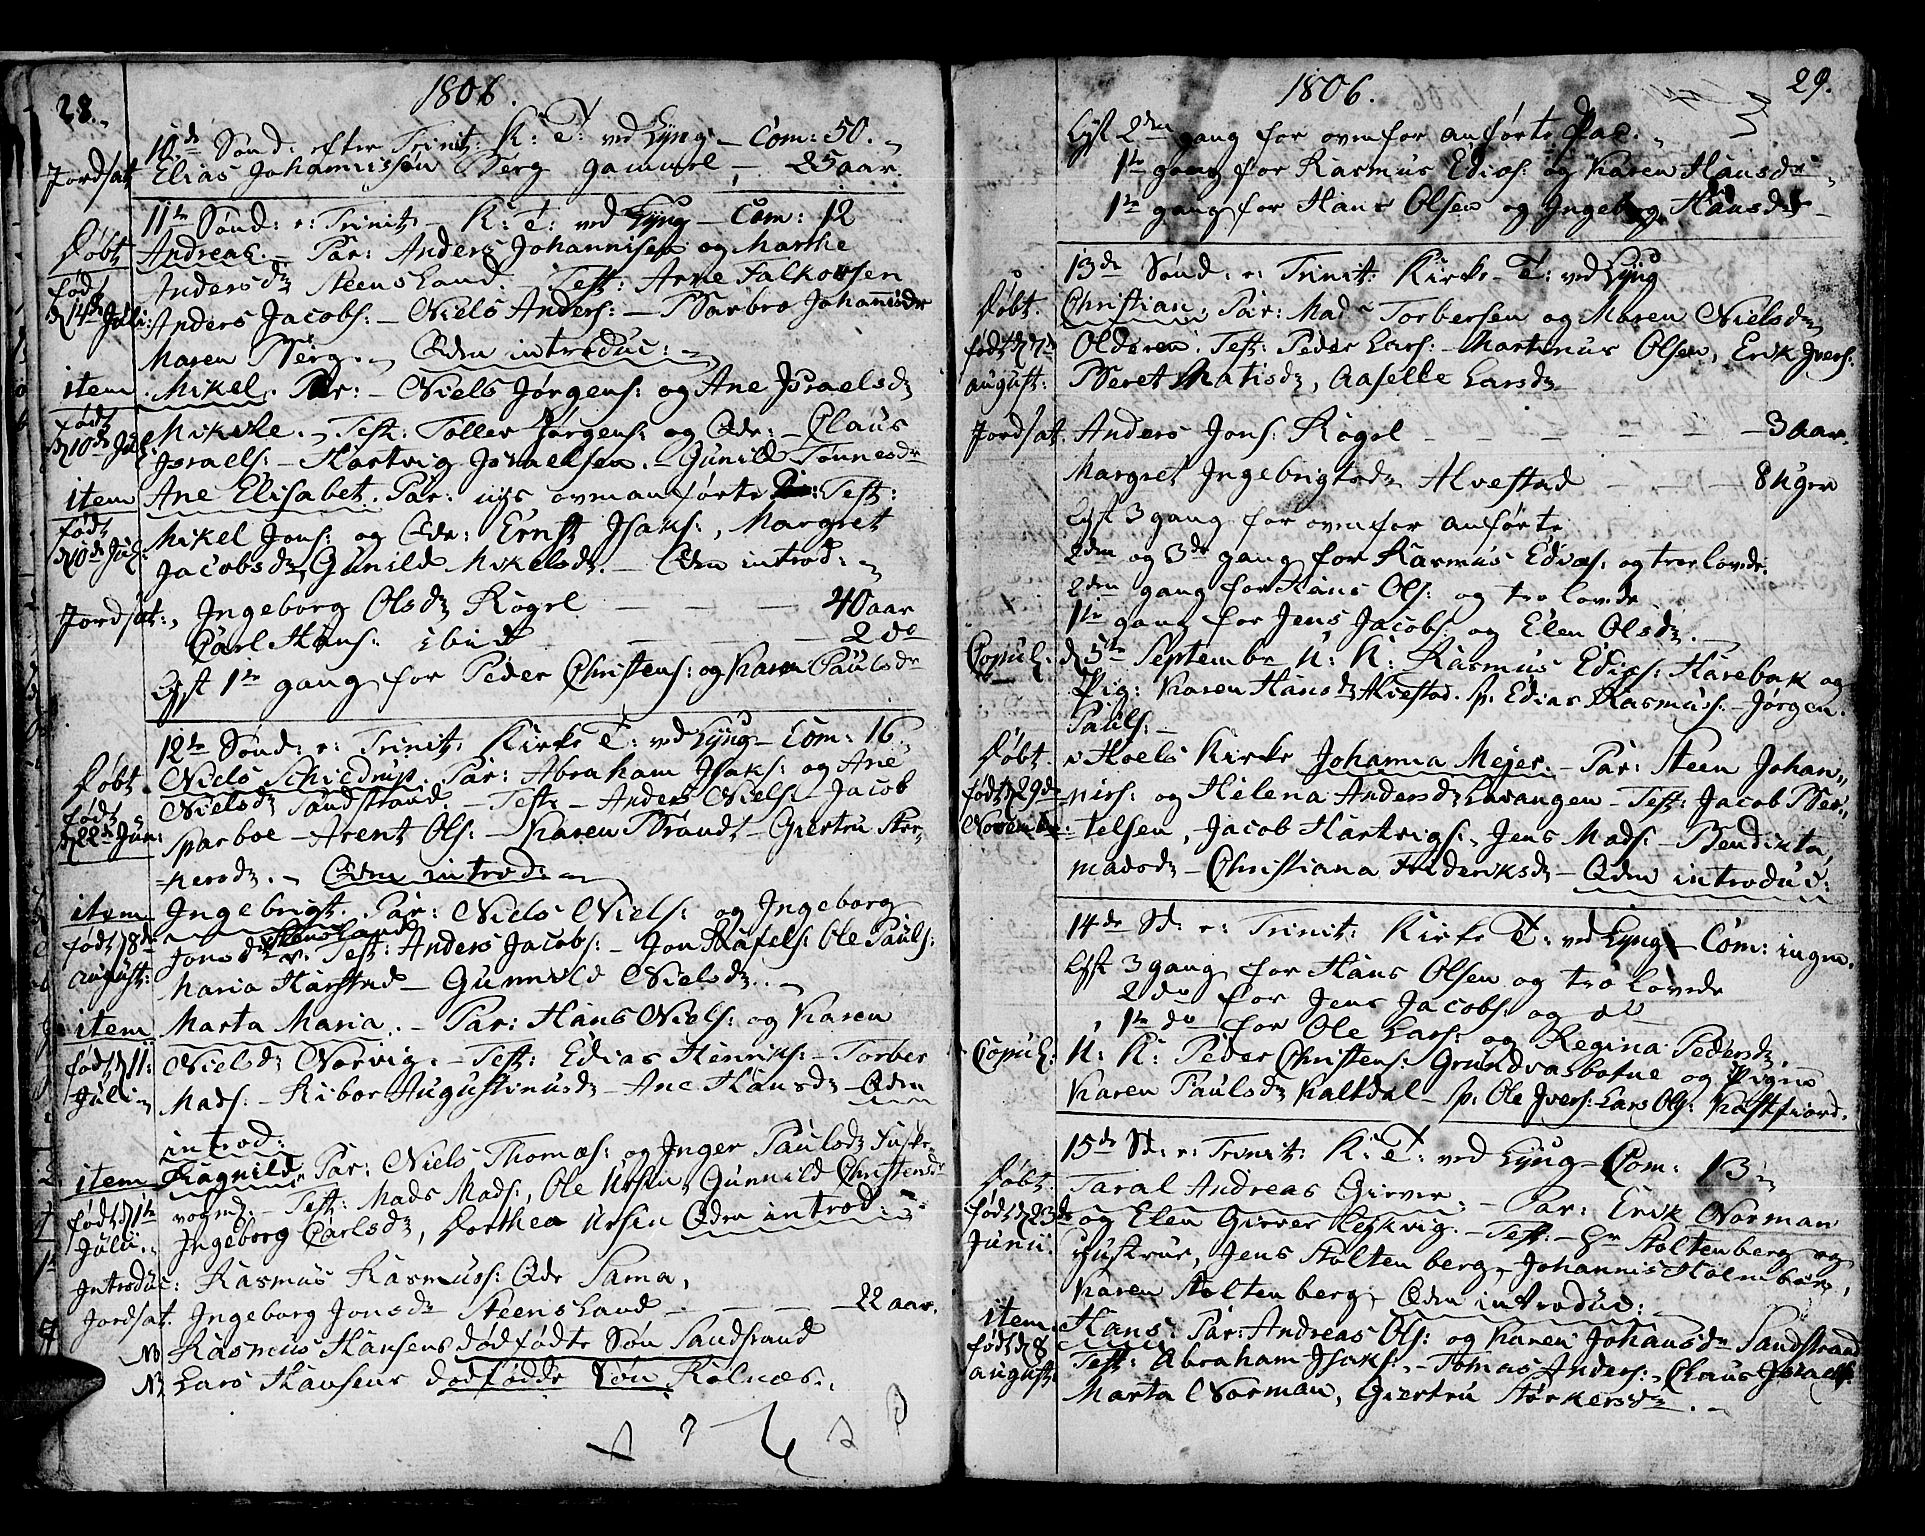 28.
1806.
10de Sønd: efter Trinit: K: T: ved Lyng — Com: 50.
Jordsat Elias Johannissøn Berg gammel, 25 aar.
11te Sønd: e: Trinit: K: T: ved Lyng — Com: 12
Døbt Andreas. — Par: Anders Johannisen og Marthe
født Andersdr Steensland. — Test: Arne Falkorsen
d 14de Juli: Anders Jacobs: — Niels Anders: — Barbro Johannisdr
Maren Berg. — Qden introduc:
item Mikel. Par: — Niels Jørgens: og Ane Israelsdr
født Test: Toller Jørgens: og Qde: — Claus
d 10de Jul: Israels: — Hartvig Israelsen. — Gunild Tønnesdr
item Ane Elisabet. Par: ovenanførte Test:
født Mikel Jons: og Qde: Ernst Isaks:, Margret
d 10de Jul: Jacobsdr, Gunild Mikelsdr. — Qden introd:
Jordsat: Ingeborg Olsdr Røgel — — — 40 aar
Carl Hans: ibid — — — 2 do
Lyst 1te gang for Peder Christens: og Karen Paulsdr
12te Sønd: e: Trinit: Kirke T: ved Lyng — Com: 16.
Døbt. Niels Schieldrup. Par: Abraham Isaks: og Ane
født Nielsdr Sandstrand. — Test: — Anders Niels: — Jacob
d 22de Jun: Sparboe — Arent Ols: — Karen Brandt — Giertru Stør-
kersdr. — Qden introd:
item Ingebrigt. Par: Niels Niels: og Ingeborg
født d 8de Jonsdr Steensland. Test: Anders Jacobs: — Jon Rafels: Ole Pauls:
august: Maria Harstad — Gunnild Nielsdr.
item Marta Maria. — Par: Hans Niels: og Karen
født d 11: Nielsdr Norvig. — Test: Edias Henriks: — Torber
Juli Mads: — Kibor Augustinusdr — Ane Hansdr — Qden
introd:
item Ragnild. Par: Niels Thomæs: og Inger Paulsdr Fuske
født d 1te vogen. — Test: Mads Mads:, Ole Ursin, Gunnild Christensdr
Julii. Ingeborg Carlsdr, Dorthea Ursin Qden introd:
Introduc: Rasmus Rasmuss: Qde Sama,
Jordsat. Ingeborg Jonsdr Steensland — — — 22 aar.
NB Rasmus Hansens dødfødte Søn Sandstrand
NB Lars Hansens dødfødde Søn Kolnæs.
1806.
29.
Lyst 2den gang for ovenfor anførte Par.
1te gang for Rasmus Edias: og Karen Hansdr
1te gang for Hans Olsen og Ingeborg Hansdr
13de Sønd: e: Trinit: Kirke T: ved Lyng
Døbt. Christian. Par: Mads Torbersen og Maren Nielsdr
født d 7de Olderen. Test: Peder Lars: — Martinus Olsen, Erik Ivers:
august: Beret Matisdr, Aaselle Larsdr
Jordsat. Anders Jons: Røgel — — — 3 aar.
Margret Ingebrigtsdr Alvestad — — 8 uger
Lyst 3 gang for ovenfor anførte
2den og 3de gang for Rasmus Edias: og trolovede.
2den gang for Hans Ols: og trolovede
1te gang for Jens Jacobs: og Elen Olsdr.
Copul: d 5te September U: K: Rasmus Edias: Harebak og
Pig: Karen Hansdr Alvestad. Sp: Edias Rasmuss: — Jørgen
Pauls: —
Døbt. i Hoels Kirke Johanna Mejer. — Par: Steen Johan-
født d 29de nis: og Helena Andersdr Lavangen — Test: Jacob Ber-
November: telsen, Jacob Hartvigs:, Jens Mads: — Bendikta
madsdr — Christiana Frideriksdr — Qden introduc:
14de Sd: e: Trinit: Kirke T: ved Lyng — Com: ingen.
Lyst 3 gang for Hans Olsen og trolovede
2 do for Jens Jacobs: og do
1te do for Ole Lars: og Regina Pedersdr.
Copul: U: K: Peder Christens: Grundvasbotne og Pigen
Karen Paulsdr Kaltdal — Sp: Ole Ivers: Lars Ols: Kastfiord.
15de Sd: e: Trinit: K: T: ved Lyng — Com: 13
Døbt. Taral Andreas Giever. — Par: Erik Norman
født d 23de og Elen Giever Lejkvig. — Test: — Hr Stoltenberg og
Junii. Hustrue, Jens Stoltenberg, Johannis Holmboe,
Karen Stoltenberg, Qden introduc:
item Hans. Par: Andreas Ols: og Karen Johansdr Sandstrand
født d 8 Test: Abraham Isaks:, — Tomas Anders:, Claus Israels:
august: Marta Norman, Giertru Størkersdr.